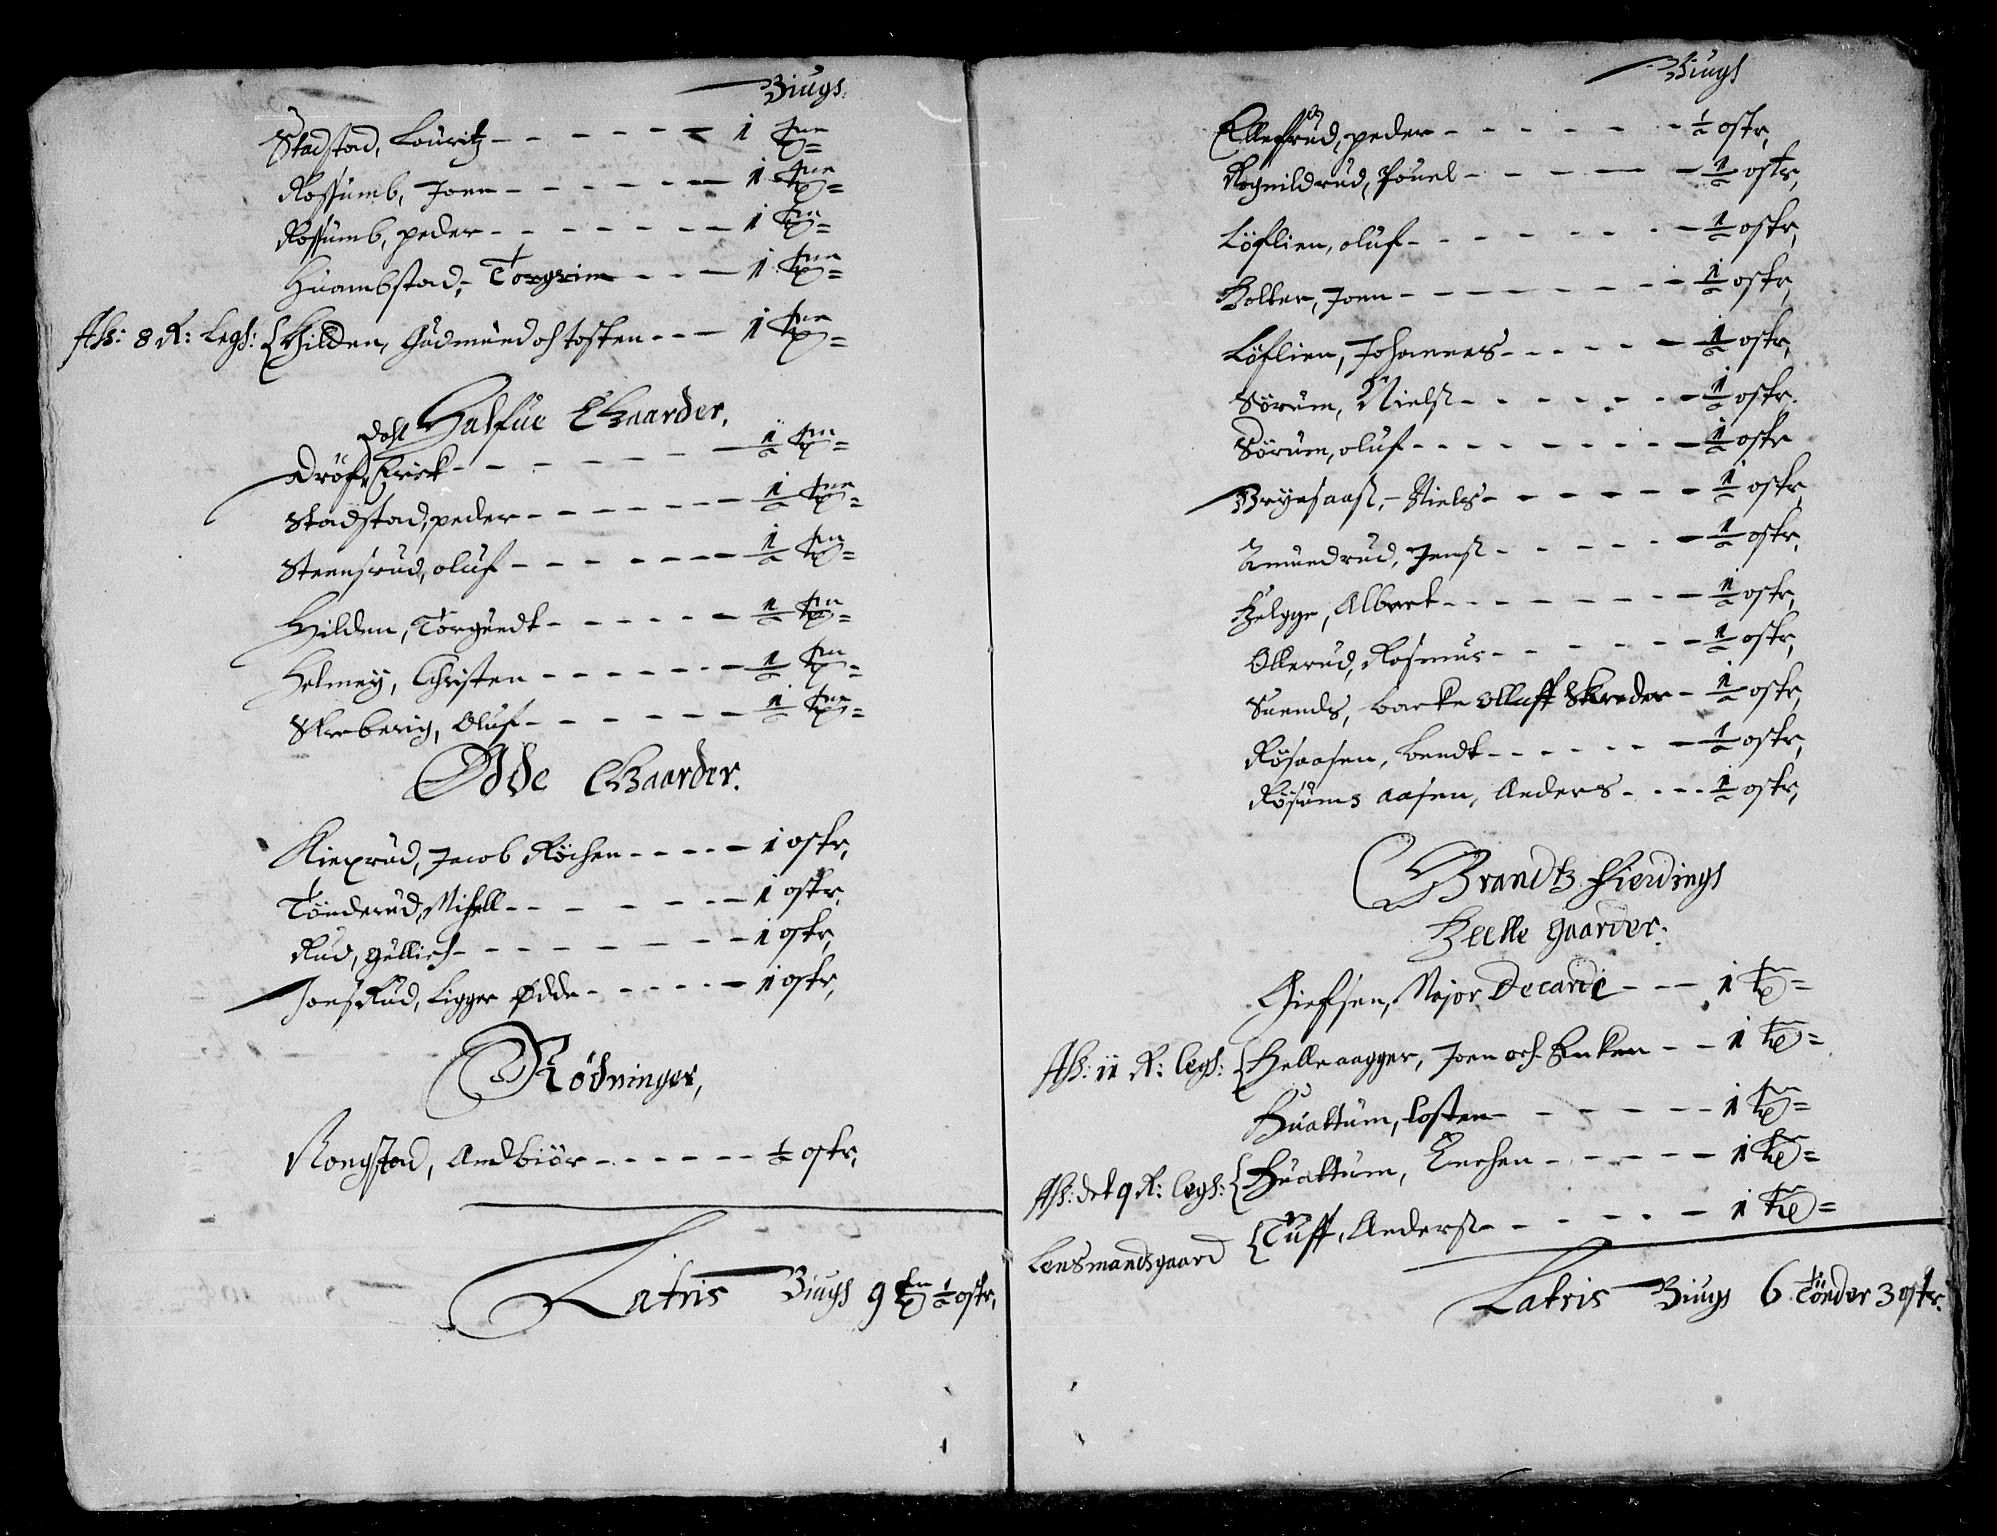 Biugs:
Stadstad, Louritz - - - - - - 1 tnn
Rossumb, Joen - - - - - - 1 tnn
Rossumb, peder - - - - - - 1 tnn
Huambstad, Torgrim - - - 1 tnn
Afh: 8 R: Legh: { Hilden, Gudmund oh tosten - - - 1 tnn
Halfue Gaarder.
Dahl
Dröf, Erick - - - - - - ½ tnn
Stadstad, peder - - - - - - ½ tnn
Steensrud, oluf - - - - - - ½ tnn
Hilden, Torgundt - - - - - ½ tnn
Helmey, Christen - - - - - - ½ tnn
Skreberig, Oluf - - - - - - ½ tnn
Ödde Gaarder.
Kiexrud, Jacob Köchen - - - - - 1 ostr,
Tönderud, Mihell - - - - - - 1 ostr,
Rud, gullich - - - - - - - 1 ostr,
Jonsrud, Ligger ödde - - - - - 1 ostr,
Rödninger,
Rongstad, Andbiör - - - - - - ½ ostr,
Latris Biugs 9 tn ½ ostr,
Biugs
Ellefsrud, peder - - - - - - ½ ostr,
Rognildrud, Pouel - - - - - ½ ostr,
Löflien, oluf - - - - - - ½ ostr,
Holter, Joen - - - - - - - ½ ostr,
Löflien, Johannes - - - - - ½ ostr,
Sörum, Nielss - - - - - - ½ ostr.
Sörum, oluf - - - - - - - - ½ ostr
Brynsaass, - Niels - - - - - - ½ ostr,
Amundrud, Jenss - - - - - - ½ ostr,
Helgge, Albret - - - - - - - ½ ostr,
Ollerud, Rasmus - - - - - - ½ ostr,
Suends, barke olluff Skreder - ½ ostr,
Rösaasen, bendt - - - - - - ½ ostr,
Rösums aasen, Anders - - - - ½ ostr,
Brandtz Fierdings
Heelle gaarder:
Giefsen, Major Decarei - - - 1 tn
Afh: 11 R: legh: { Helleaagger, Joen och Enken - - 1 tn
Huattum, tosten - - - - - - 1 tn
Afh: det 9 R: legh: { Huattum, Enchen - - - - - 1 tn
Lensmandsgaard { Tuff, Anderss - - - - - - 1 tn
Latris Biugs 6 Tönder 3 ostr.